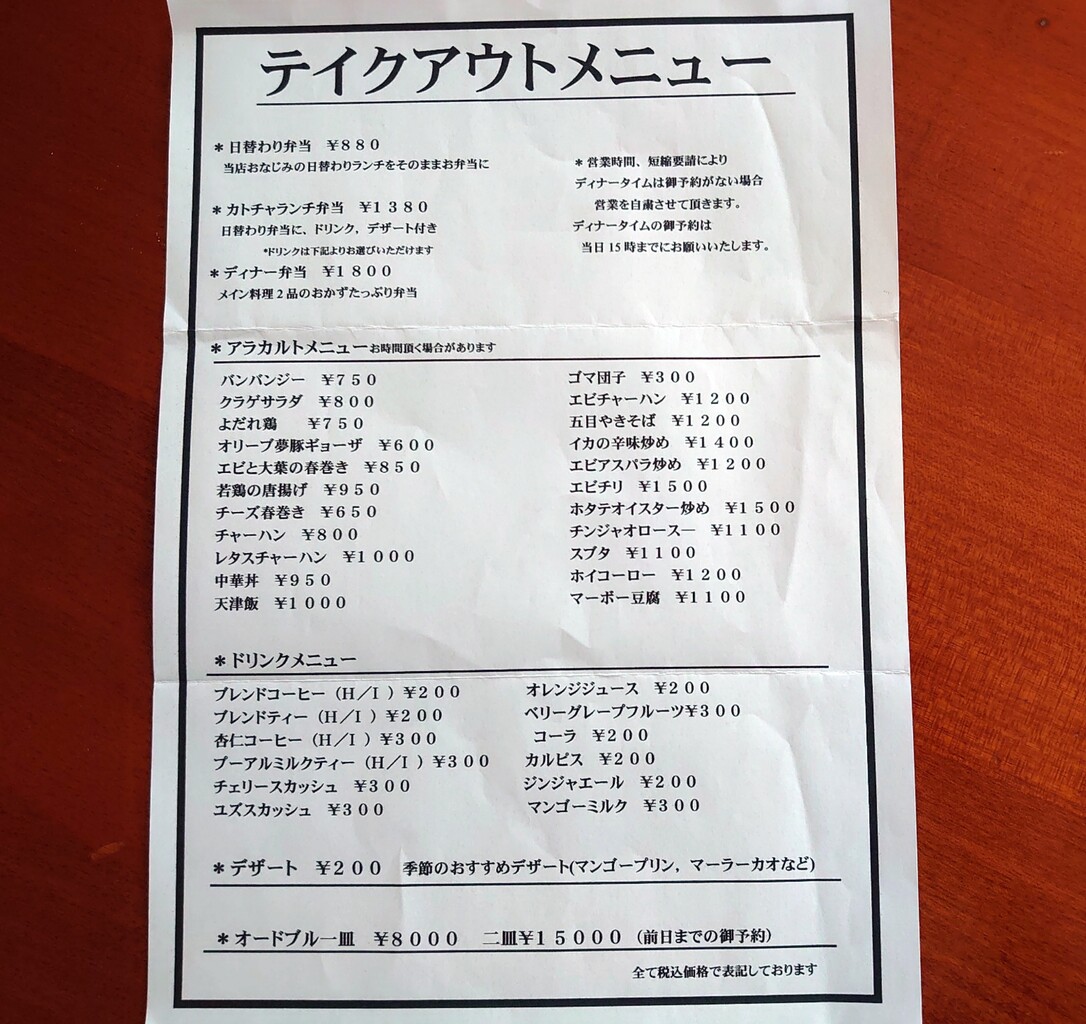 テイクアウトメニュー
＊日替わり弁当　￥８８０
当店おなじみの日替わりランチをそのままお弁当に
＊カトチャランチ弁当　￥１３８０
日替わり弁当に、ドリンク，デザート付き
*ドリンクは下記よりお選びいただけます
＊ディナー弁当　￥１８００
メイン料理２品のおかずたっぷり弁当
＊営業時間、短縮要請により
ディナータイムは御予約がない場合
営業を自粛させて頂きます。
ディナータイムの御予約は
当日 15 時までにお願いいたします。
＊アラカルトメニューお時間頂く場合があります
バンバンジー　￥７５０
クラゲサラダ　￥８００
よだれ鶏　　￥７５０
オリーブ夢豚ギョーザ　￥６００
エビと大葉の春巻き　￥８５０
若鶏の唐揚げ　￥９５０
チーズ春巻き　￥６５０
チャーハン　￥８００
レタスチャーハン　￥１０００
中華丼　￥９５０
天津飯　￥１０００
ゴマ団子　￥３００
エビチャーハン　￥１２００
五目やきそば　￥１２００
イカの辛味炒め　￥１４００
エビアスパラ炒め　￥１２００
エビチリ　￥１５００
ホタテオイスター炒め　￥１５００
チンジャオロース―　￥１１００
スブタ　￥１１００
ホイコーロー　￥１２００
マーボー豆腐　￥１１００
＊ドリンクメニュー
ブレンドコーヒー（Ｈ／Ｉ ）￥２００
ブレンドティー（Ｈ／Ｉ ）￥２００
杏仁コーヒー（Ｈ／Ｉ ）￥３００
プーアルミルクティー（Ｈ／Ｉ ）￥３００
チェリースカッシュ　￥３００
ユズスカッシュ　￥３００
オレンジジュース　￥２００
ベリーグレープフルーツ￥３００
コーラ　￥２００
カルピス　￥２００
ジンジャエール　￥２００
マンゴーミルク　￥３００
＊デザート　￥２００　季節のおすすめデザート(マンゴープリン，マーラーカオなど)
＊オードブル一皿　￥８０００　二皿￥１５０００（前日までの御予約）
全て税込価格で表記しております